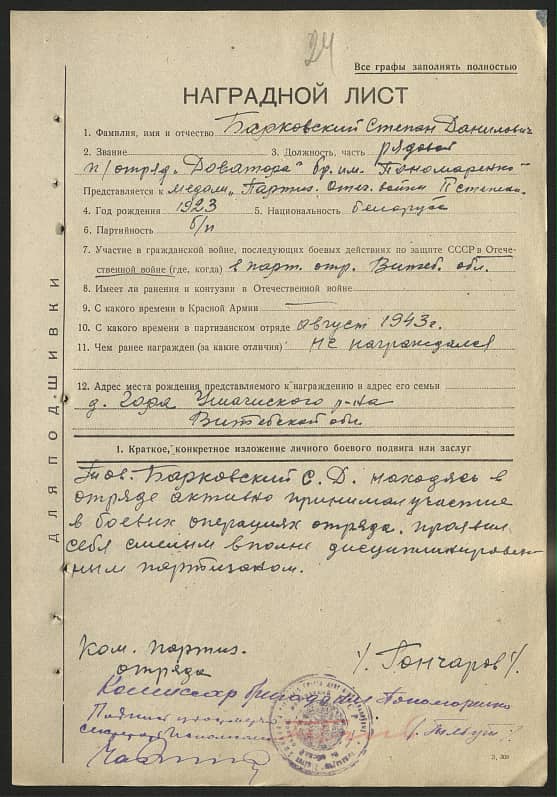 24
Все графы заполнять полностью
НАГРАДНОЙ ЛИСТ
1. Фамилия, имя и отчество Барковский Степан Данилович
2. Звание 3. Должность, часть рядовой
п/отряд „Доватора" бр. им. Пономаренко
Представляется к медали „Партиз. Отеч. войны II степени
4. Год рождения 1923 5. Национальность белорус
6. Партийность б/п
7. Участие в гражданской войне, последующих боевых действиях по защите СССР в Отече-
ственной войне (где, когда) в парт. отр. Витеб. обл.
8. Имеет ли ранения и контузии в Отечественной войне
9. С какого времени в Красной Армии
10. С какого времени в партизанском отряде август 1943 г.
11. Чем ранее награжден (за какие отличия) не награждался
12. Адрес места рождения представляемого к награждению и адрес его семьи
д. Гора Ушачского р-на
Витебской обл.
1. Краткое, конкретное изложение личного боевого подвига или заслуг
Тов. Барковский С. Д. находясь в
отряде активно принимал участие
в боевых операциях отряда, проявил
себя смелым вполне дисциплинирован-
ным партизаном.
Ком. партиз.
отряда /Гончаров/.
Комиссар бригады им. Пономаренко
ДЛЯ ПОДШИВКИ